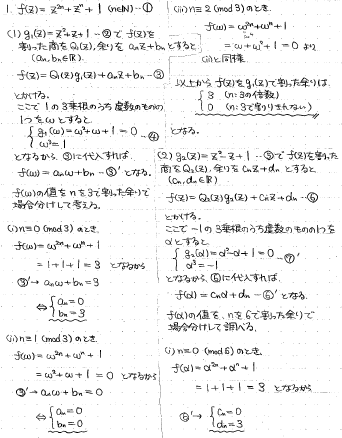 1. f(z) = z²ⁿ + zⁿ + 1 (n∈N) …①
(1) g₁(z) = z² + z + 1 …② で f(z)を
割った商を Q₁(z), 余りを aₙz + bₙ とすると
(aₙ, bₙ∈R)
f(z) = Q₁(z)g₁(z) + aₙz + bₙ …③
とかける。
ここで 1の3乗根のうち虚数のものの
1つをωとすると
{ g₁(ω) = ω² + ω + 1 = 0 …④
ω³ = 1
となるから、③に代入すれば、
f(ω) = aₙω + bₙ …③' となる。
f(ω)の値をnを3で割った余りで
場合分けして考える。
(i) n≡0 (mod 3) のとき
f(ω) = ω²ⁿ + ωⁿ + 1
= 1 + 1 + 1 = 3 となるから
③'→ aₙω + bₙ = 3
⇔ { aₙ = 0
bₙ = 3
(ii) n≡1 (mod 3) のとき
f(ω) = ω²ⁿ + ωⁿ + 1
= ω² + ω + 1 = 0 となるから
③'→ aₙω + bₙ = 0
⇔ { aₙ = 0
bₙ = 0
(iii) n≡2 (mod 3) のとき
f(ω) = ω²ⁿ + ωⁿ + 1
= ω + ω² + 1 = 0 より
(ii)と同様。
以上から f(z)をg₁(z)で割った余りは
{ 3 (n: 3の倍数)
0 (n: 3で割りきれない)
となる。
(2) g₂(z) = z² - z + 1 …⑤ で f(z)を割った
商を Q₂(z), 余りを cₙz + dₙ とすると
(cₙ, dₙ∈R)
f(z) = Q₂(z)g₂(z) + cₙz + dₙ …⑥
とかける。
ここで -1の3乗根のうち虚数のものの1つを
αとすると
{ g₂(α) = α² - α + 1 = 0 …⑦
α³ = -1
となるから、⑥に代入すれば、
f(α) = cₙα + dₙ …⑥' となる。
f(α)の値を、nを6で割った余りで
場合分けして調べる。
(i) n≡0 (mod 6) のとき
f(α) = α²ⁿ + αⁿ + 1
= 1 + 1 + 1 = 3 となるから
⑥'→ { cₙ = 0
dₙ = 3